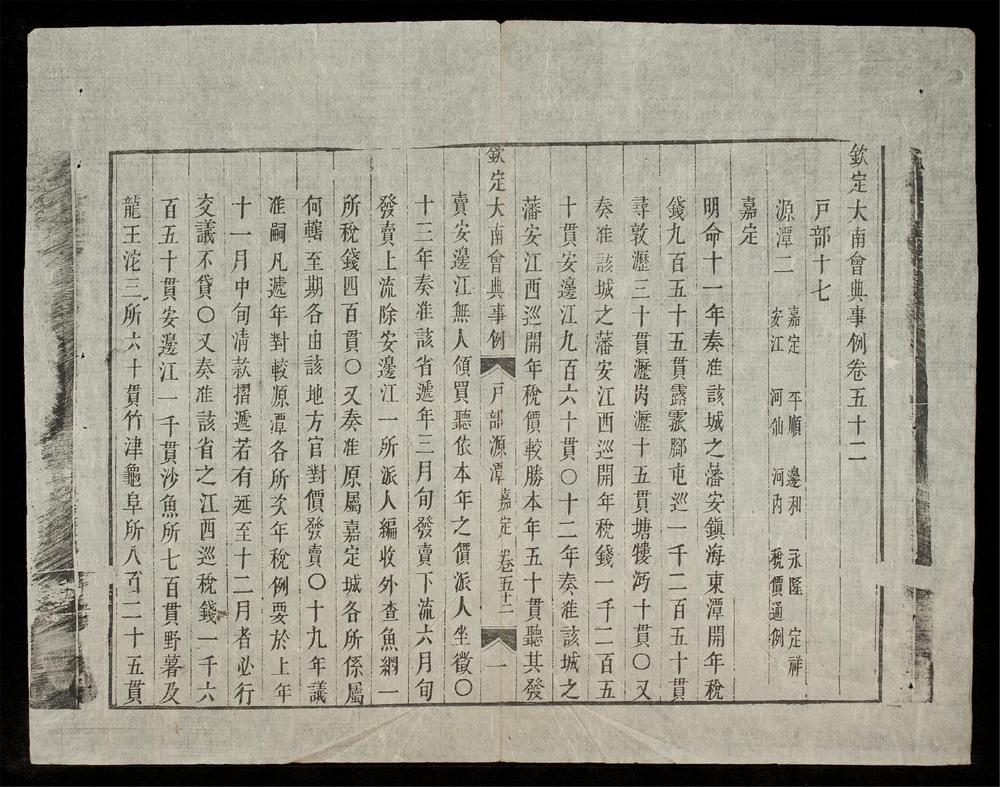 欽定大南會典事例卷五十二
戸部十七
源潭二
嘉定 平順 邊和 永隆 定祥
安江 河仙 河內 税價通例
嘉定
明命十一年奏准該城之藩安鎮海東潭開年稅
錢九百五十五貫露𩄎腳屯巡一千二百五十貫
尋敦瀝三十貫瀝𡶀瀝十五貫塘㹥沔十貫〇又
奏准該城之藩安江西巡開年稅錢一千二百五
十貫安邊江九百六十貫〇十二年奏准該城之
藩安江西巡開年稅價較勝本年五十貫聽其發
欽定大南會典事例 戸部源潭 嘉定 卷五十二 一
賣安邊江無人領買聽依本年之價派人坐徵〇
十三年奏准該省遞年三月旬發賣下流六月旬
發賣上流除安邊江一所派人編收外查魚網一
所稅錢四百貫〇又奏准原屬嘉定城各所係屬
何轄至期各由該地方官對價發賣〇十九年議
准嗣凡遞年對較源潭各所次年稅例要於上年
十一月中旬清款摺遞若有延至十二月者必行
交議不貸〇又奏准該省之江西巡稅錢一千六
百五十貫安邊江一千貫沙魚所七百貫野暮及
龍王沱三所六十貫竹津龜阜所八百二十五貫